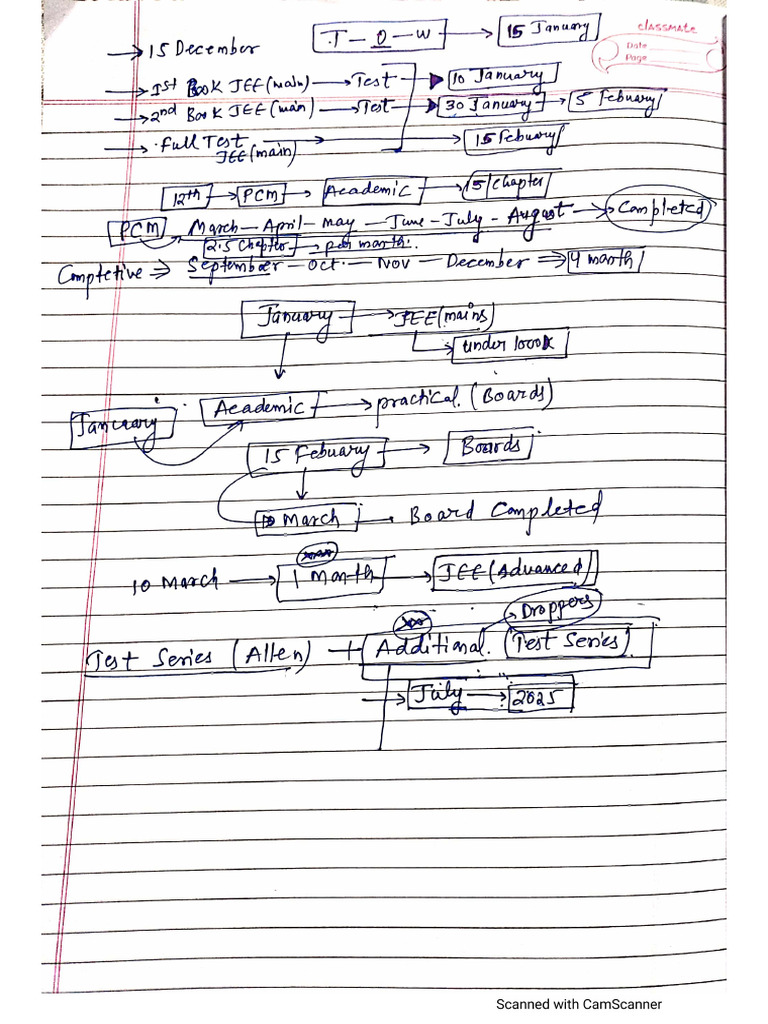 classmate
Date
Page
→ 15 December T - O - W → 15 January
→ Ist Book JEE (main) → Test → 10 January
→ 2nd Book JEE (main) → Test → 30 January → 5 Febuary
→ . Full Test JEE (main) → 15 Febuary
12th → PCM → Academic → 15 | chapter
PCM March - April - may - June - July - August → Completed
2.5 Chapter → per month.
Comptetive ⇒ September - Oct. - Nov - December ⇒ 4 month
January → JEE (mains)
→ under 1000k
January Academic → practical. (Boards)
15 Febuary → Boards
10 March → Board Completed
10 March → 1 Month → JEE (Advanced)
Droppers
Test Series (Allen) + Additional. (Test Series)
→ July → 2025
Scanned with CamScanner